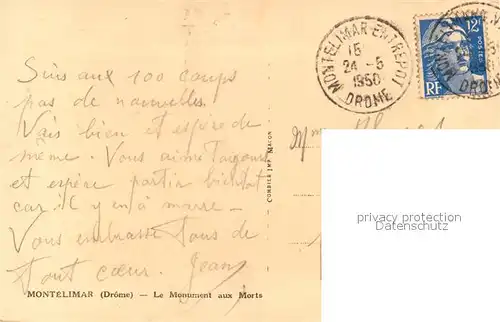 Suis aux 100 coups
pas de nouvelles.
Vais bien et espère de
même. Vous aime toujours
et espère partir bientôt
car il y en à marre.
Vous embrasse tous de
tout cœur. Jean
MONTÉLIMAR (Drôme) — Le Monument aux Morts
COMBIER IMP. MACON
MONTÉLIMAR-ENTREPOT
15
24-5
1950
DROME
12F
POSTES
RF
Mme
privacy protection
Datenschutz